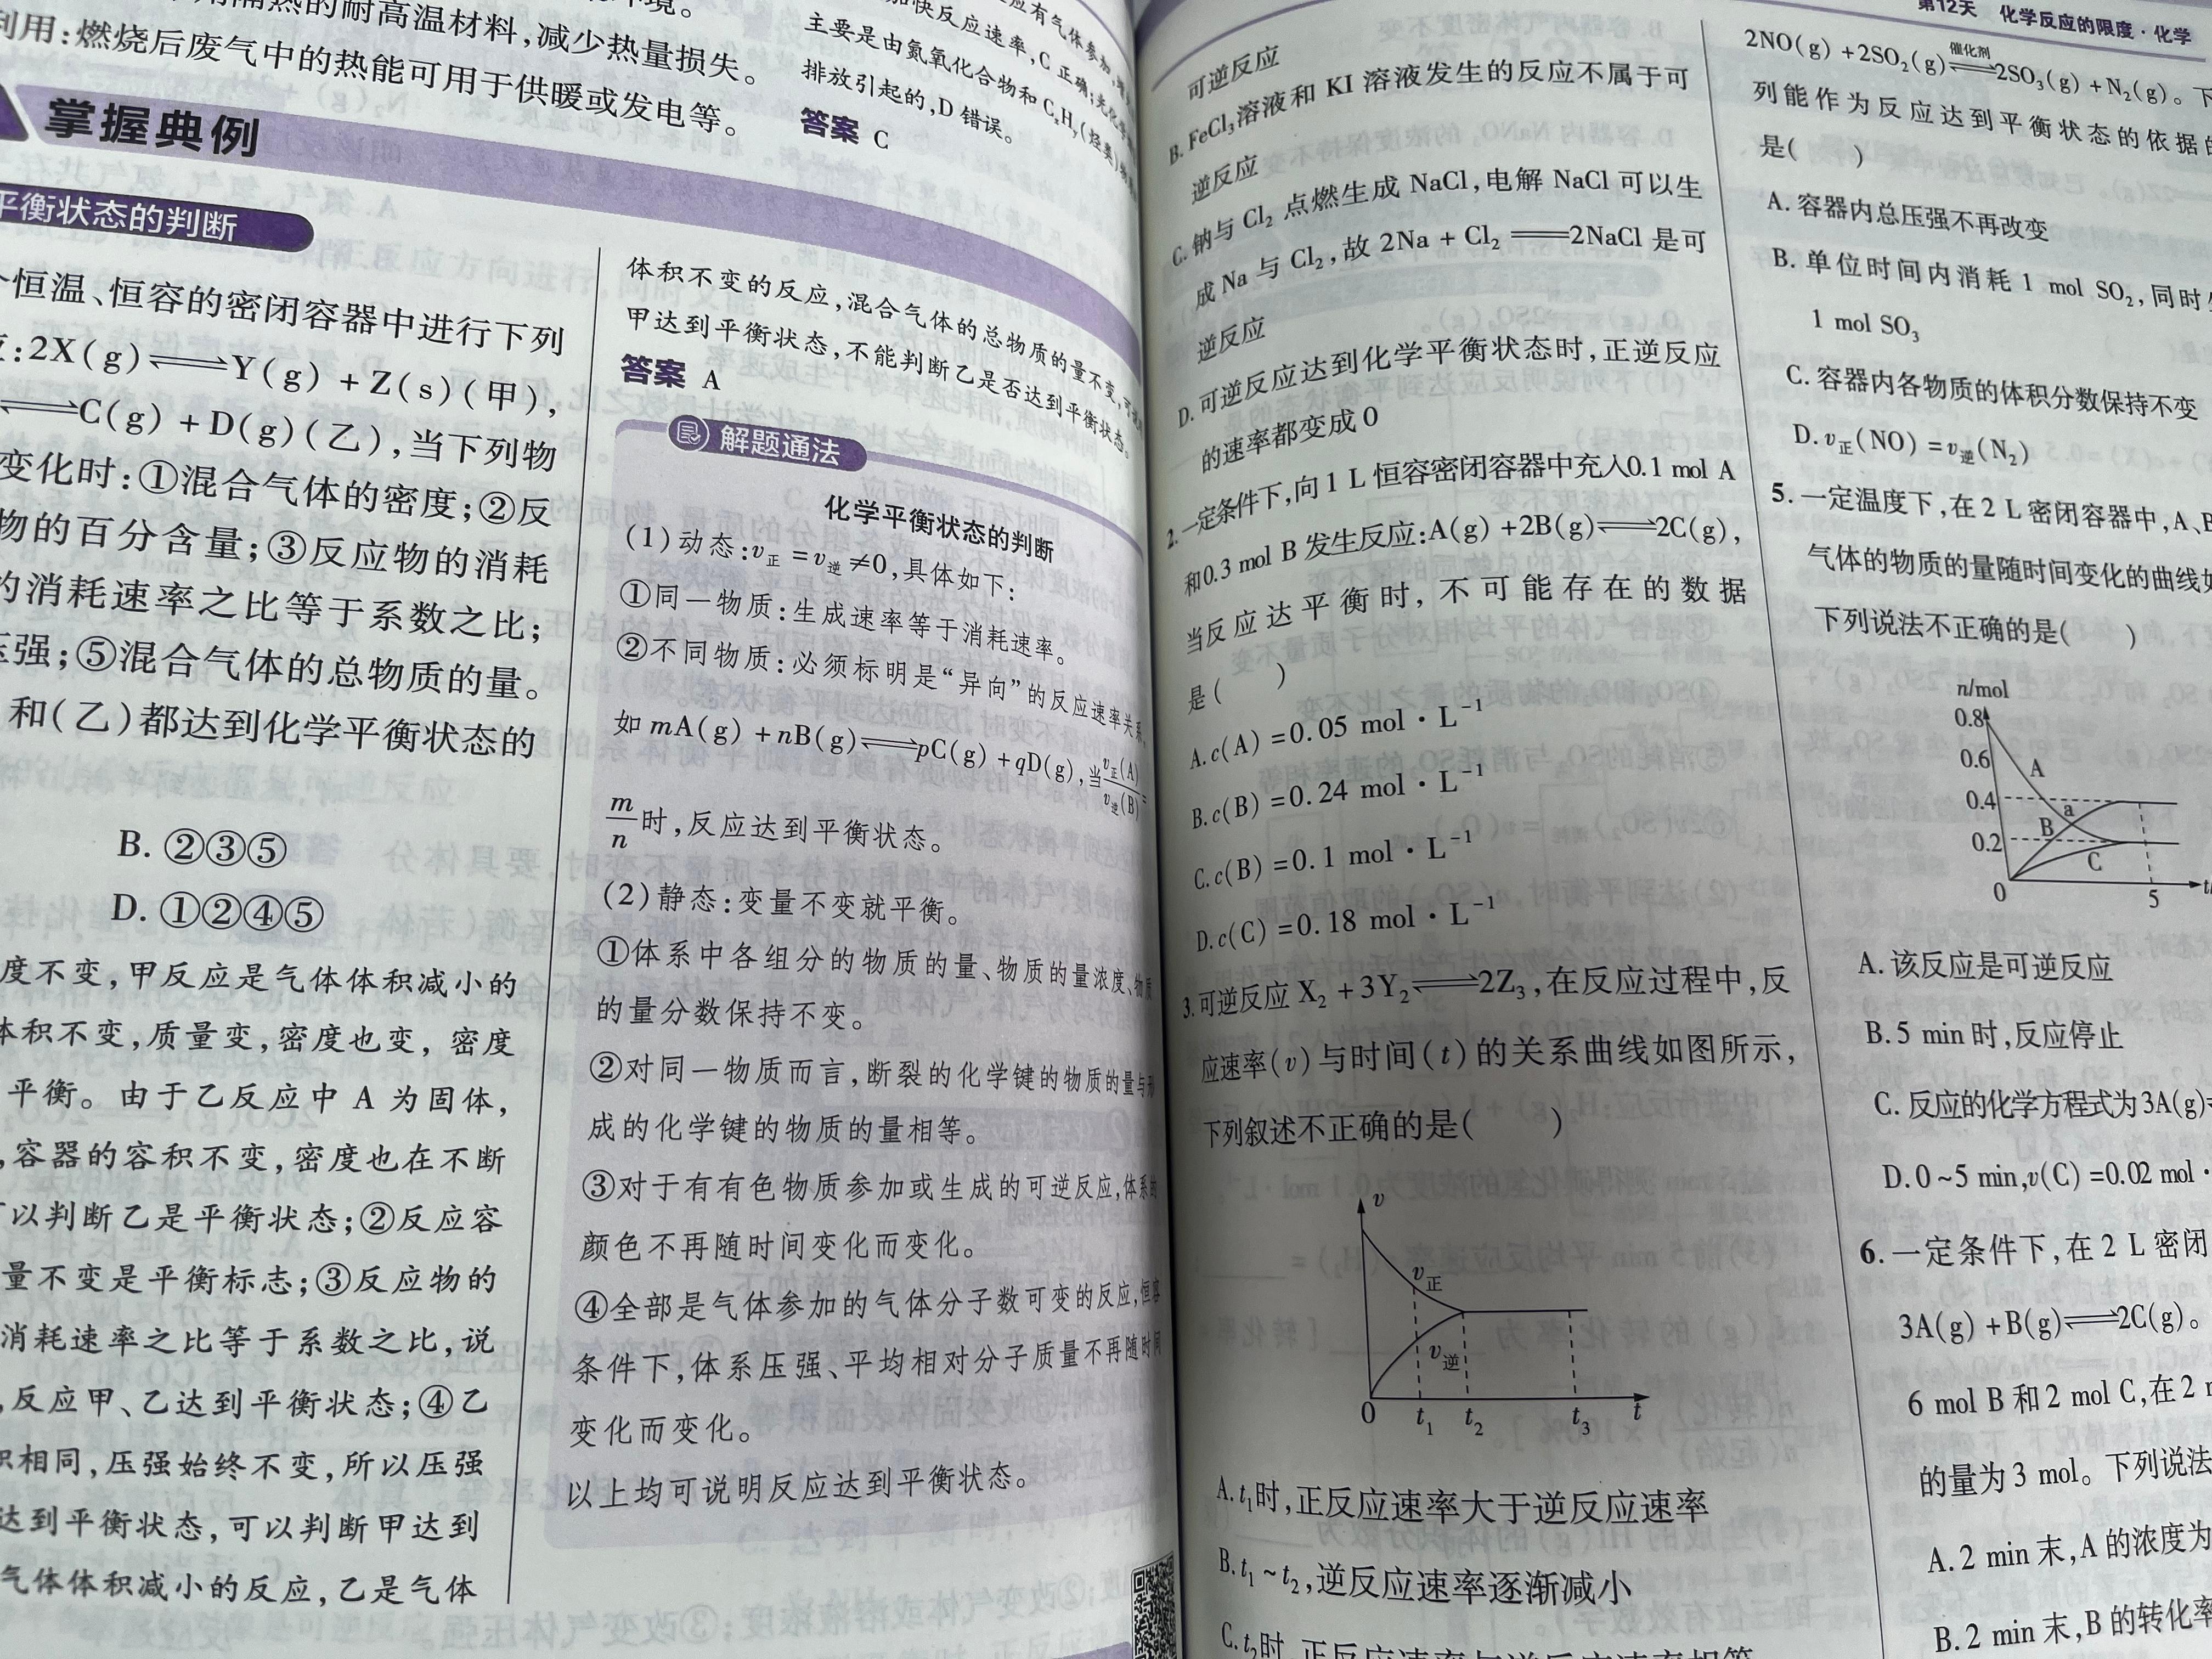 用隔热的耐高温材料,减少热量损失。
利用:燃烧后废气中的热能可用于供暖或发电等。
应有气体参加,
加快反应速率,C 正确;
主要是由氮氧化合物和CxHy(烃类)
排放引起的,D 错误。
答案 C
掌握典例
平衡状态的判断
恒温、恒容的密闭容器中进行下列
:2X(g)⇌Y(g)+Z(s)(甲),
⇌C(g)+D(g)(乙),当下列物
变化时:①混合气体的密度;②反
物的百分含量;③反应物的消耗
的消耗速率之比等于系数之比;
压强;⑤混合气体的总物质的量。
和(乙)都达到化学平衡状态的
B. ②③⑤
D. ①②④⑤
度不变,甲反应是气体体积减小的
体积不变,质量变,密度也变,密度
平衡。由于乙反应中 A 为固体,
,容器的容积不变,密度也在不断
可以判断乙是平衡状态;②反应容
量不变是平衡标志;③反应物的
消耗速率之比等于系数之比,说
,反应甲、乙达到平衡状态;④乙
积相同,压强始终不变,所以压强
达到平衡状态,可以判断甲达到
气体体积减小的反应,乙是气体
体积不变的反应,混合气体的总物质的量不变,
甲达到平衡状态,不能判断乙是否达到平衡状态。
答案 A
解题通法
化学平衡状态的判断
(1)动态:v正=v逆≠0,具体如下:
①同一物质:生成速率等于消耗速率。
②不同物质:必须标明是“异向”的反应速率关系。
如 mA(g)+nB(g)⇌pC(g)+qD(g),当v正(A)/v逆(B)=
m/n时,反应达到平衡状态。
(2)静态:变量不变就平衡。
①体系中各组分的物质的量、物质的量浓度、物质
的量分数保持不变。
②对同一物质而言,断裂的化学键的物质的量与形
成的化学键的物质的量相等。
③对于有有色物质参加或生成的可逆反应,体系的
颜色不再随时间变化而变化。
④全部是气体参加的气体分子数可变的反应,恒容
条件下,体系压强、平均相对分子质量不再随时间
变化而变化。
以上均可说明反应达到平衡状态。
第12天 化学反应的限度·化学
可逆反应
B. FeCl₃溶液和 KI 溶液发生的反应不属于可
逆反应
C. 钠与 Cl₂ 点燃生成 NaCl,电解 NaCl 可以生
成 Na 与 Cl₂,故 2Na+Cl₂══2NaCl 是可
逆反应
D. 可逆反应达到化学平衡状态时,正逆反应
的速率都变成 0
2. 一定条件下,向 1 L 恒容密闭容器中充入0.1 mol A
和0.3 mol B 发生反应:A(g)+2B(g)⇌2C(g),
当反应达平衡时,不可能存在的数据
是( )
A. c(A)=0.05 mol·L⁻¹
B. c(B)=0.24 mol·L⁻¹
C. c(B)=0.1 mol·L⁻¹
D. c(C)=0.18 mol·L⁻¹
3. 可逆反应 X₂+3Y₂⇌2Z₃,在反应过程中,反
应速率(v)与时间(t)的关系曲线如图所示,
下列叙述不正确的是( )
v
v正
v逆
0 t₁ t₂ t₃ t
A. t₁时,正反应速率大于逆反应速率
B. t₁~t₂,逆反应速率逐渐减小
C. t₂时,正反应速率与逆反应速率相等
2NO(g)+2SO₂(g)⇌催化剂2SO₃(g)+N₂(g)。下
列能作为反应达到平衡状态的依据的
是( )
A. 容器内总压强不再改变
B. 单位时间内消耗 1 mol SO₂,同时
1 mol SO₃
C. 容器内各物质的体积分数保持不变
D. v正(NO)=v逆(N₂)
5. 一定温度下,在 2 L 密闭容器中,A、B
气体的物质的量随时间变化的曲线如
下列说法不正确的是( )
n/mol
0.8
0.6
A
0.4
a
B
0.2
C
0 5 t/
A. 该反应是可逆反应
B. 5 min 时,反应停止
C. 反应的化学方程式为3A(g)
D. 0~5 min,v(C)=0.02 mol·
6. 一定条件下,在 2 L 密闭
3A(g)+B(g)⇌2C(g)。
6 mol B 和 2 mol C,在 2
的量为 3 mol。下列说法
A. 2 min 末,A 的浓度为
B. 2 min 末,B 的转化率